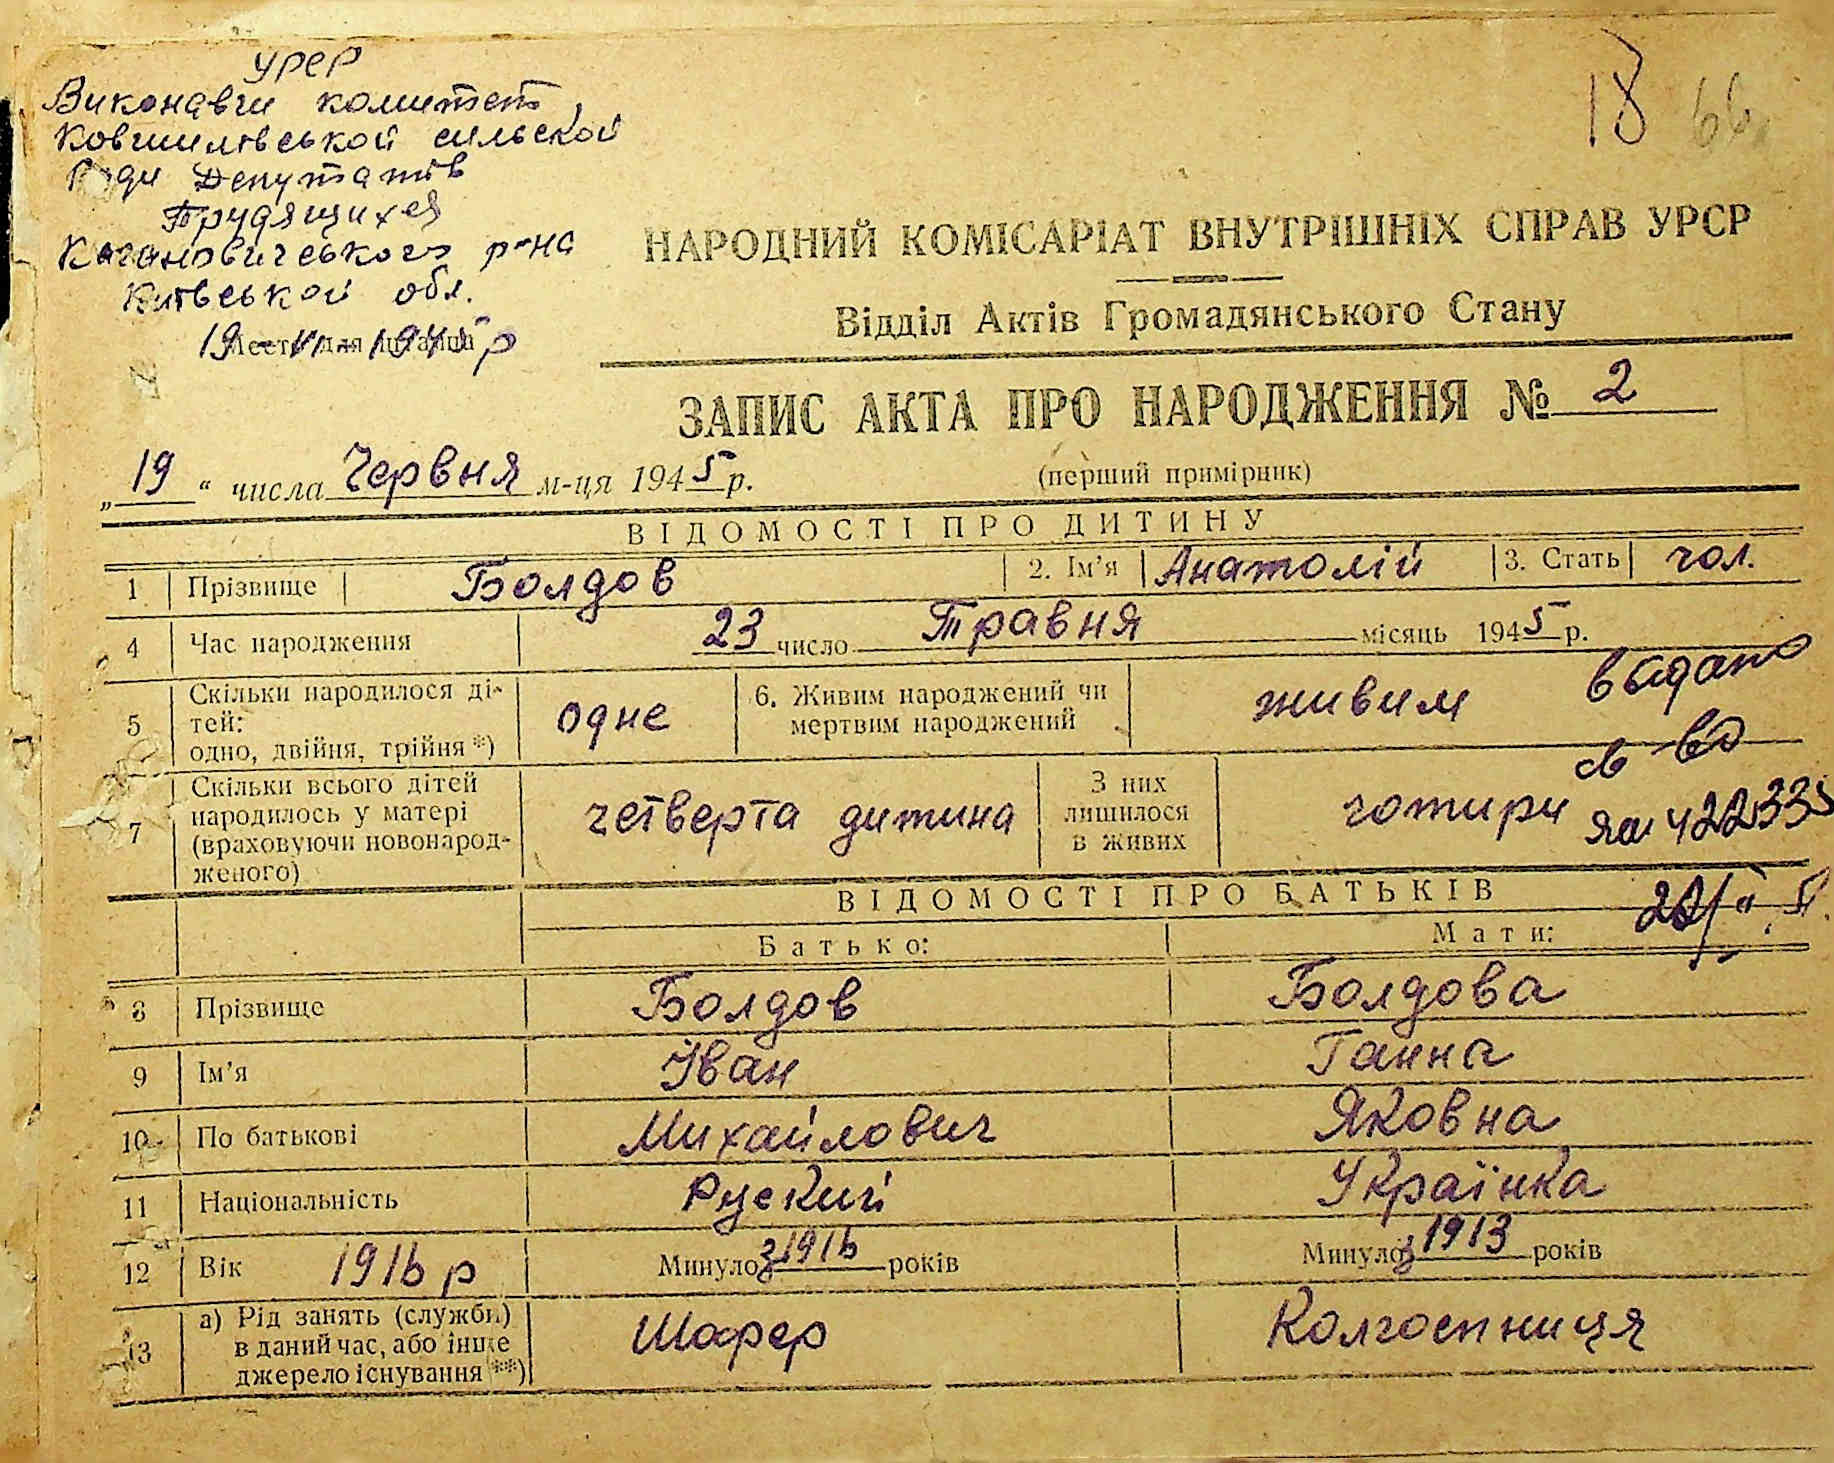 УРСР
Виконавчи комитет
Ковшилівськой сильской
Ради Депутатів
Трудящихся
Кагановичського р-на
Київськой обл.
19 VI 1945 р
18 66
НАРОДНИЙ КОМІСАРІАТ ВНУТРІШНІХ СПРАВ УРСР
Відділ Актів Громадянського Стану
ЗАПИС АКТА ПРО НАРОДЖЕННЯ № 2
„19“ числа Червня м-ця 1945 р.
(перший примірник)
ВІДОМОСТІ ПРО ДИТИНУ
1 Прізвище Болдов 2. Ім'я Анатолій 3. Стать чол.
4 Час народження 23 число Травня місяць 1945 р.
5 Скільки народилося ді-
тей:
одно, двійня, трійня *) одне 6. Живим народжений чи
мертвим народжений живим
видано
св-во
7 Скільки всього дітей
народилось у матері
(враховуючи новонарод-
женого) четверта дитина З них
лишилося
в живих чотири
422335
ВІДОМОСТІ ПРО БАТЬКІВ
Батько: Мати:
8 Прізвище Болдов Болдова
9 Ім'я Іван Ганна
10 По батькові Михайлович Яковна
11 Національність Руский Українка
12 Вік 1916 р Минуло з 1916 років Минуло з 1913 років
13 а) Рід занять (служби)
в даний час, або інше
джерело існування **) Шофер Колгоспниця